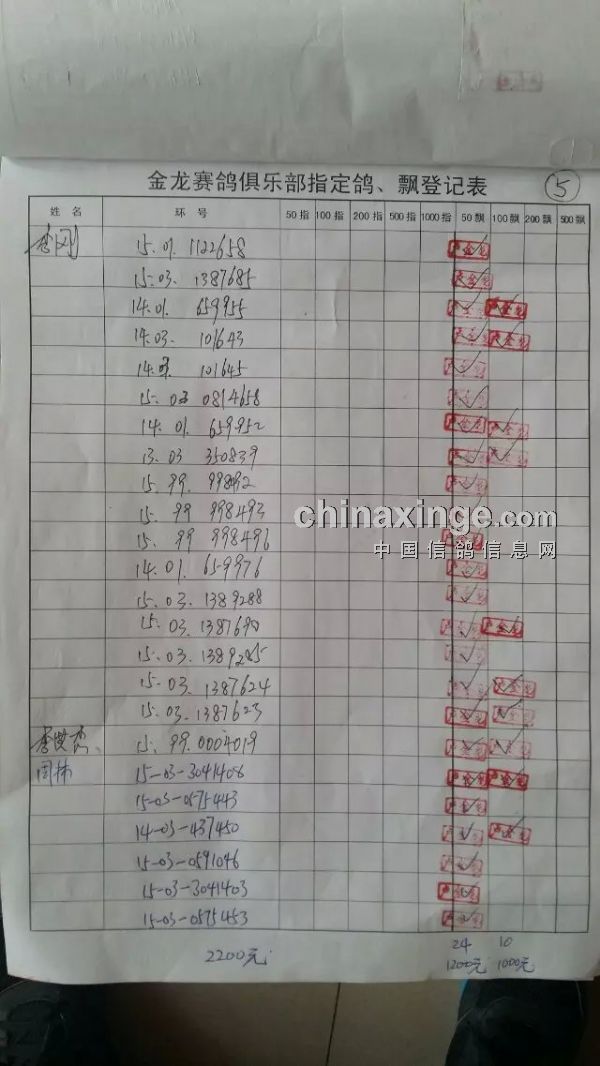 金龙赛鸽俱乐部指定鸽、飘登记表 ⑤
姓名 环号 50指 100指 200指 500指 1000指 50飘 100飘 200飘 500飘
李刚 15.01 1122658
15.03. 1387685
14.01. 659955
14.03. 101643
14.03. 101645
15.03 0814658
14.01. 659952
13.03 350839
15.99. 998492
15.99 998493
15.99 998496
14.01. 659976
15.03.1389288
15.03.1387690
15.03.1389285
15.03.1387624
15.03.1387623
15.99.0004019
周林 15-03-3041408
15-03-0575443
14-03-437450
15-03-0591046
15-03-3041403
15-03-0575453
24 10
2200元 1200元 1000元
chinaxinge.com
中国信鸽信息网